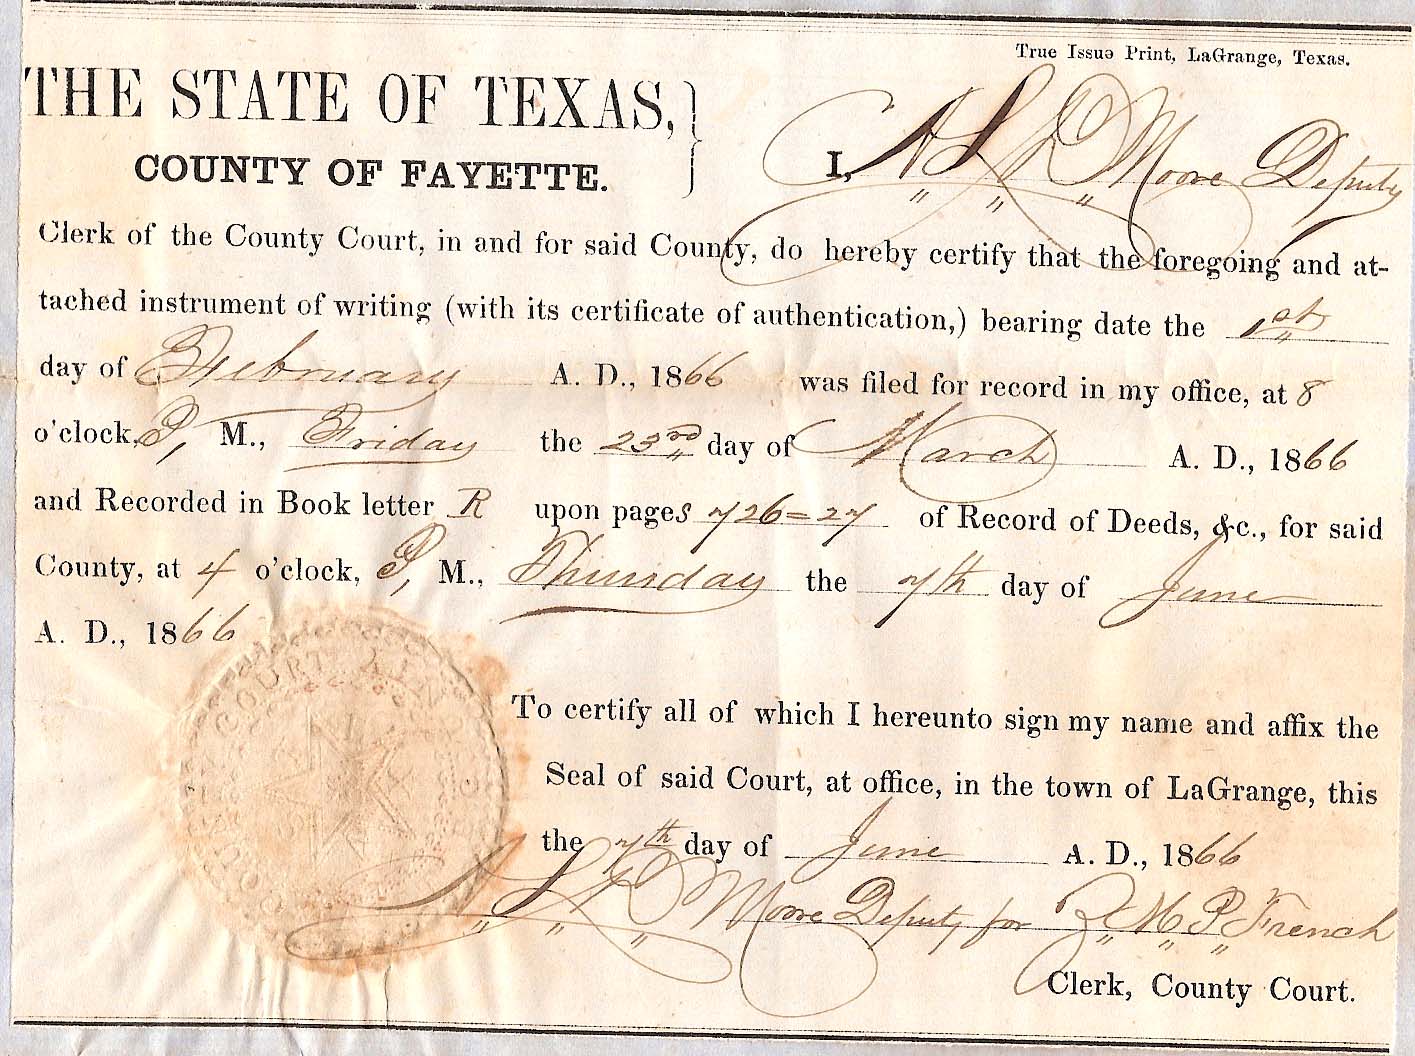 True Issue Print, LaGrange, Texas.
THE STATE OF TEXAS,
COUNTY OF FAYETTE.
I, Moore Deputy
Clerk of the County Court, in and for said County, do hereby certify that the foregoing and at-
tached instrument of writing (with its certificate of authentication,) bearing date the 1st
day of February A. D., 1866 was filed for record in my office, at 8
o'clock, P, M., Friday the 23rd day of March A. D., 1866
and Recorded in Book letter R upon pages 726=27 of Record of Deeds, &c., for said
County, at 4 o'clock, P, M., Thursday the 7th day of June
A. D., 1866
COURT
To certify all of which I hereunto sign my name and affix the
Seal of said Court, at office, in the town of LaGrange, this
the 7th day of June A. D., 1866
Moore Deputy for Z M P French
Clerk, County Court.